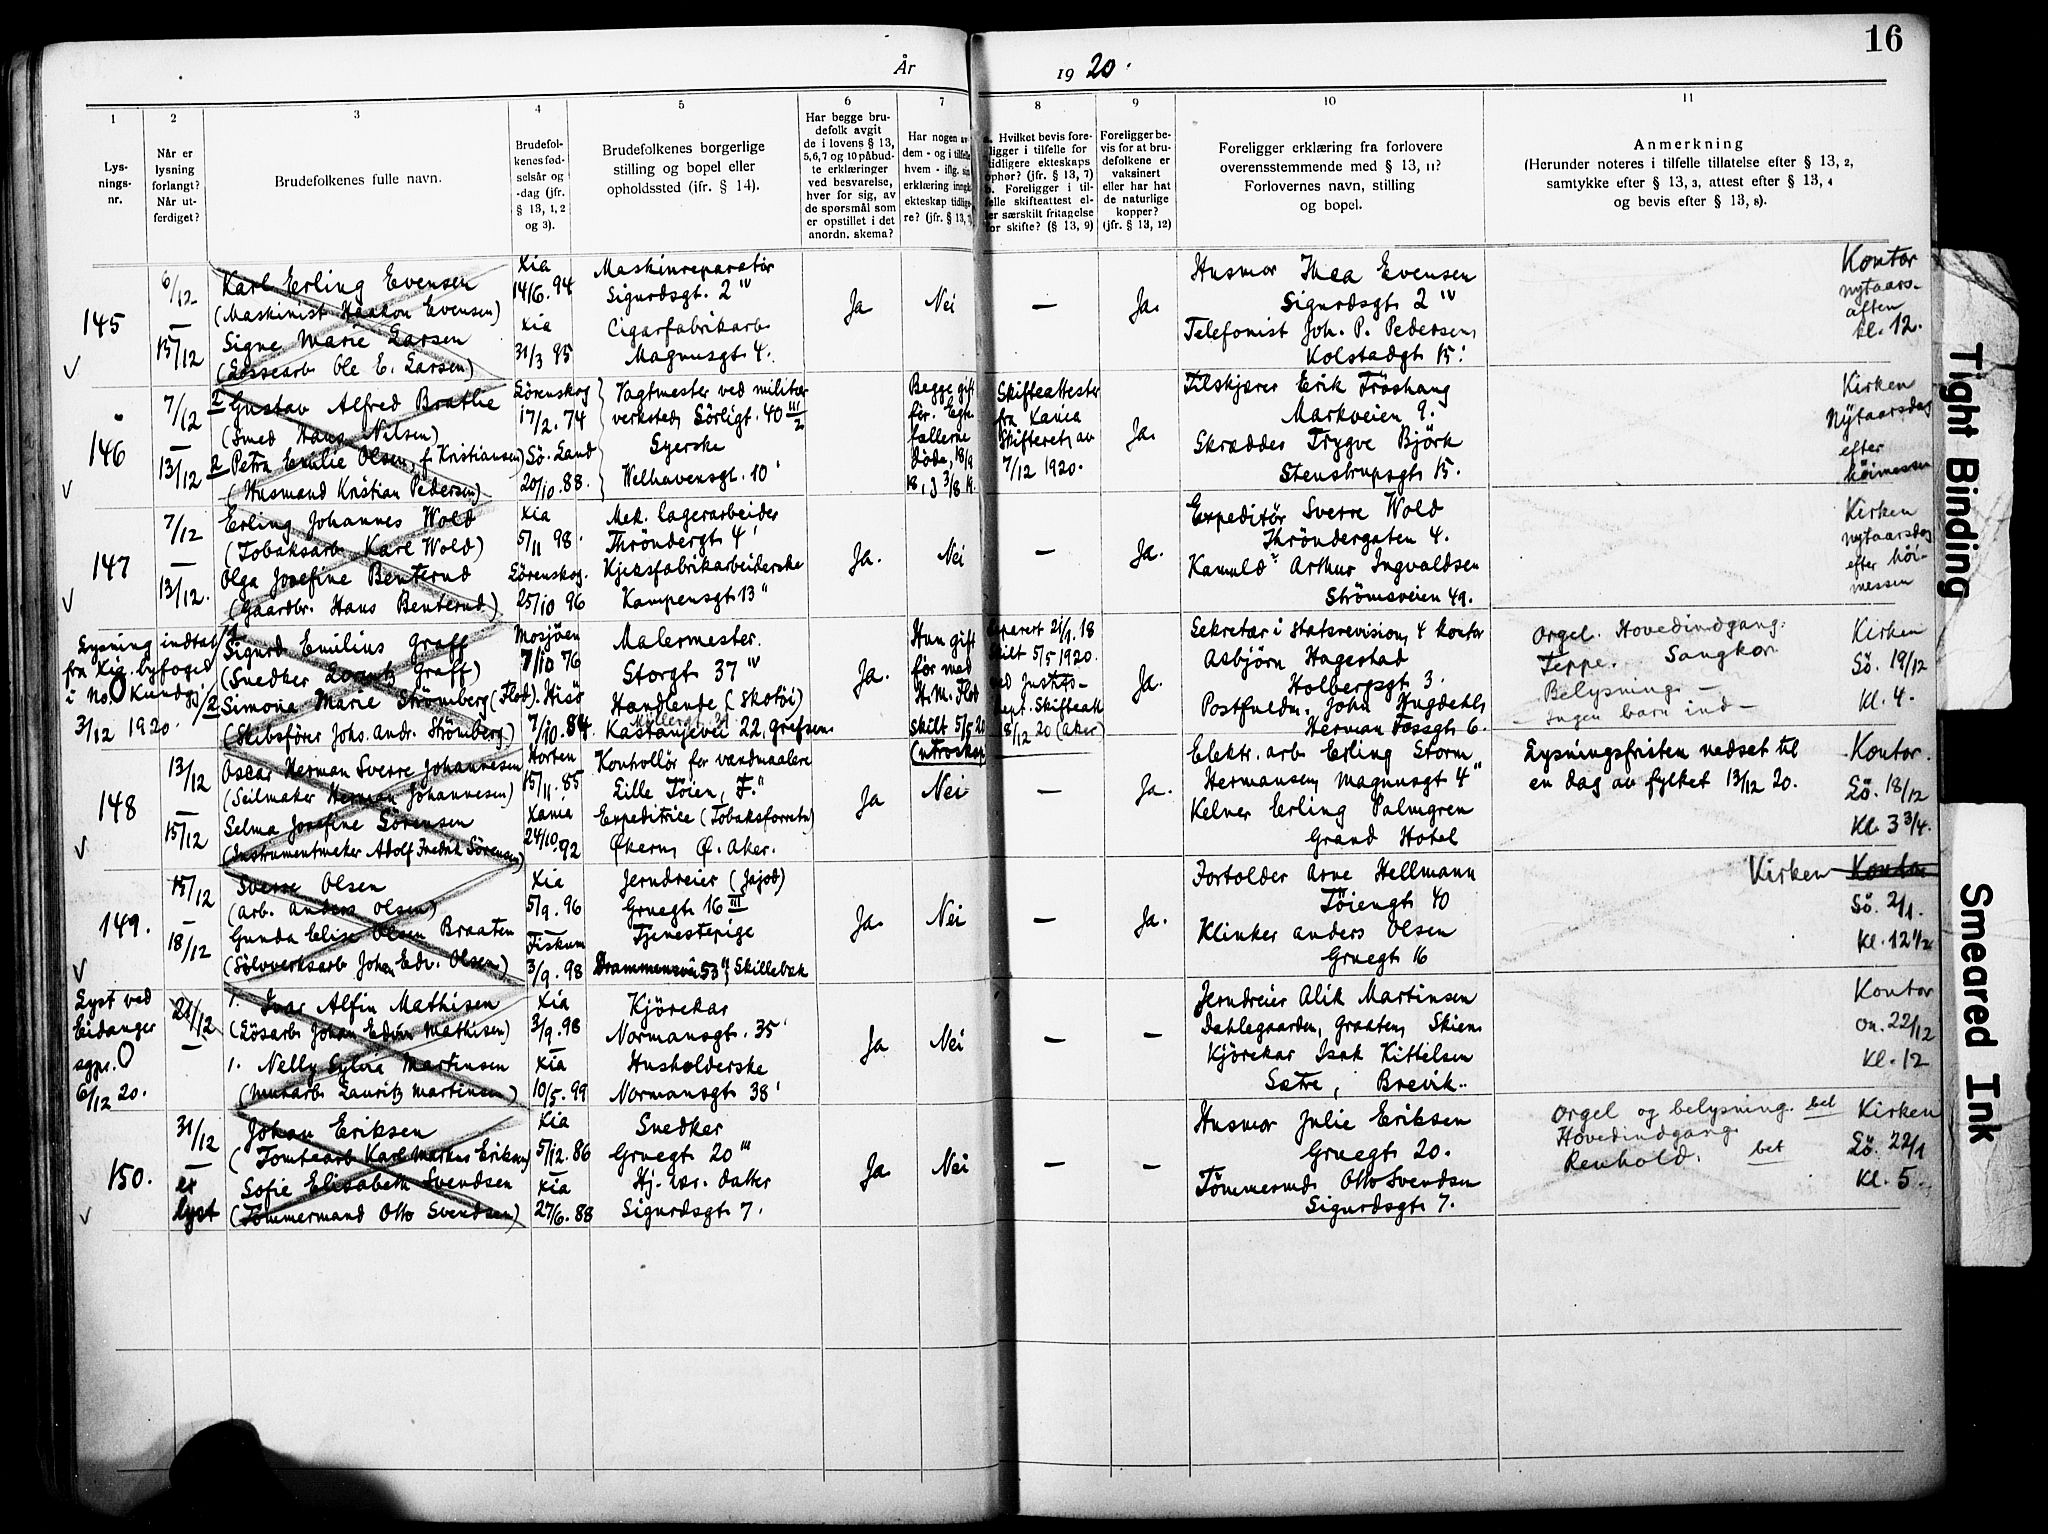 16
År 1920.
1 2 3 4 5 6 7 8 9 10 11
Lysningsnr.
Når er lysning forlangt? Når utferdiget?
Brudefolkenes fulle navn.
Brudefolkenes fødselsår og -dag (jfr. § 13, 1, 2 og 3).
Brudefolkenes borgerlige stilling og bopel eller opholdssted (jfr. § 14).
Har begge brudefolk avgit de i lovens § 13, 5, 6, 7 og 10 påbudte erklæringer ved besvarelse, hver for sig, av de spørsmål som er opstillet i det anordn. skema?
Har nogen av dem - og i tilfelle hvem - iflg. sin erklæring inngått ekteskap tidligere? (jfr. § 13, 7)
a. Hvilket bevis foreligger i tilfelle for tidligere ekteskaps ophør? (jfr. § 13, 7) b. Foreligger i tilfelle skifteattest eller særskilt fritagelse for skifte? (§ 13, 9)
Foreligger bevis for at brudefolkene er vaksinert eller har hat de naturlige kopper? (jfr. § 13, 12)
Foreligger erklæring fra forlovere overensstemmende med § 13, 11? Forlovernes navn, stilling og bopel.
Anmerkning
(Herunder noteres i tilfelle tillatelse efter § 13, 2, samtykke efter § 13, 3, attest efter § 13, 4 og bevis efter § 13, 8).
145
6/12 – 15/12
Karl Erling Evensen
(Maskinist Haakon Evensen)
Signe Marie Larsen
(Lossearb. Ole E. Larsen)
Kia
14/6. 94
Kia
31/3 95
Maskinreparatør
Sigurdsgt. 2 IV
Cigarfabrikarb.
Magnusgt. 4.
Ja
Nei
—
Ja.
Husmor Thea Evensen
Sigurdsgt. 2 IV
Telefonist Joh. P. Pedersen,
Kolstadgt. 15.
Kontor
nytaars-
aften
kl. 12.
146
7/12 – 13/12
2 Gustav Alfred Brathe
(Smed Hans Nilsen)
2 Petra Emilie Olsen, f. Kristiansen
(Husmand Kristian Pedersen)
Lørenskog
17/2. 74
Sö. Land
20/10. 88.
Vagtmester ved militær
verksted, Sörligt. 40 III/2
Syerske
Welhavensgt. 10'
Begge gift
før. Egte-
fællerne
døde, 18/9
18, & 3/8 19.
Skifteattester
fra Xania
Skifteret, av
7/12 1920.
Ja.
Tilskjærer Erik Fröshaug
Markveien 9.
Skrædder Trygve Björk
Stenstrupsgt. 15.
Kirken
Nytaarsdag
efter
höimessen
147
7/12 – 13/12.
Erling Johannes Wold
(Tobaksarb. Karl Wold)
Olga Josefine Benterud
(Gaardbr. Hans Benterud)
Kia
5/11 98.
Lørenskog.
25/10 96
Mek. lagerarbeider
Thröndergt. 4'
Kjeksfabrikarbeiderske
Kampensgt. 13"
Ja.
Nei
—
Ja.
Expeditör Sverre Wold
Thröndergaten 4.
Arthur Ingvaldsen
Strömsveien 49.
Kirken
nytaarsdag
efter höi-
messen
Lysning indtat
fra Kia. byfoged
i No. Kundg.
3/12 1920.
Sigurd Emilius Graff
(Snedker Lorentz Graff)
2 Simona Marie Strömberg (Flod).
(Skibsfører Johs. Andr. Strömberg)
Mosjöen
7/10 76
Hisö
7/10. 84.
Malermester.
Storgt. 37 IV
Handlende (Skotöi)
Møllergt. 21
Kastanjevei 22, Grefsen.
Ja.
Hun gift
før med
H. M. Flod
Skilt 5/5 20
(utroskap)
Separert 21/1. 18
Skilt 5/5 1920.
ved Justits-
dept. Skifteatt.
18/12 20 (Aker)
Ja.
Sekretær i Statsrevision, 4 kontor
Asbjörn Hagestad
Holbergsgt. 3.
Postfuldm. John Hugdahl,
Herman Fossgt. 6.
Orgel. Hovedindgang.
Teppe. Sangkor
Belysning —
— Ingen barn ind —
Kirken
Sö. 19/12
Kl. 4.
148
13/12 – 15/12
Oscar Herman Sverre Johannesen
(Seilmaker Herman Johannesen)
Selma Josefine Sörensen
(Instrumentmaker Adolf Fredrik Sörensen)
Horten
15/11. 85
Xania
24/10. 92
Kontrollör for vandmaalere
Lille Töien, F."
Expeditrice (Tobaksforretn.)
Økern, Ø. Aker.
Ja
Nei
—
Ja.
Elektr. arb. Erling Storm
Hermansen, Magnusgt. 4"
Kelner Erling Palmgren
Grand Hotel
Lysningsfristen nedset til
en dag av fylket 13/12 20.
Kontor.
Lö. 18/12
Kl. 3 3/4.
149.
15/12 – 18/12
Sverre Olsen
(Arb. Anders Olsen)
Gunda Elise Olsen Braaten
(Sölvverksarb. Johan Edv. Olsen)
Kia
5/9. 96
Fiskum
3/9. 98
Jerndreier (Jajod)
Gruegt. 16 III
Tjenestepige
Drammensvei 53", Skillebæk
Ja.
Nei
—
Ja.
Fortolder Arne Hellmann
Töiengt. 40
Klinker Anders Olsen
Gruegt. 16
Kirken Kontor
Sö. 2/1.
Kl. 12 1/2
Lyst ved
Eidanger
sgpr.
6/12 20.
21/12 –
1. Ivar Alfin Mathisen
(Lösarb. Johan Edvin Mathisen)
1. Nelly Sylvia Martinsen
(Murarb. Lauritz Martinsen)
Kia
3/9. 98
Kia
10/5. 99
Kjörekar
Normansgt. 35'
Husholderske
Normansgt. 38'
Ja
Nei
—
—
Jerndreier Alik Martinsen
Dahlegaarden, Graaten, Skien.
Kjörekar Isak Kittelsen
Sætre, Brevik.
Kontor
On. 22/12
Kl. 12
150.
31/12 –
er
lyst
Johan Eriksen
(Tomtearb. Karl Markus Eriksen)
Sofie Elisabeth Svendsen
(Tömmermand Otto Svendsen)
Kia
5/12. 86
Kia
27/6. 88
Snedker
Gruegt. 20 III
Hj. vær. datter
Sigurdsgt. 7.
Ja
Nei
—
—
Husmor Julie Eriksen
Gruegt. 20.
Tömmermd. Otto Svendsen
Sigurdsgt. 7.
Orgel og belysning. bet
Hovedindgang
Renhold. bet
Kirken
Lö. 22/1
Kl. 5.
Tight Binding
Smeared Ink